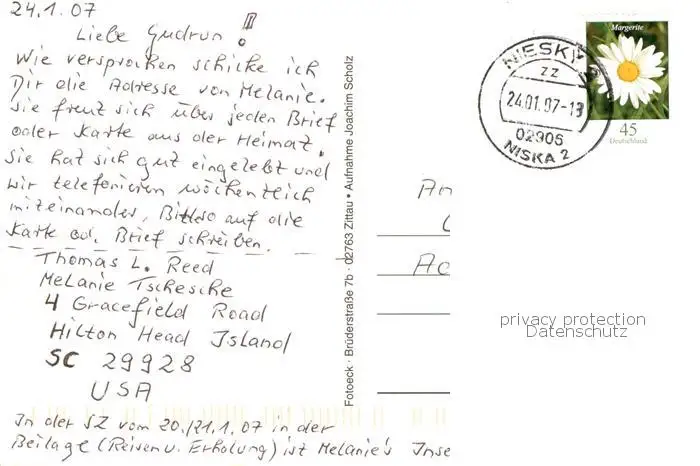 24.1.07
Liebe Gudrun!
Wie versprochen schicke ich
Dir die Adresse von Melanie.
Sie freut sich über jeden Brief
oder Karte aus der Heimat.
Sie hat sich gut eingelebt und
wir telefonieren wöchentlich
miteinander, Bitte so auf die
Karte od. Brief schreiben.
Thomas L. Reed
Melanie Tschesche
4 Gracefield Road
Hilton Head Island
SC 29928
USA
In der SZ vom 20./21.1.07 in der
Beilage (Reisen u. Erholung) ist Melanie's Inse
Fotoeck · Brüderstraße 7b · 02763 Zittau • Aufnahme Joachim Scholz
NIESKY
zz
24.01.07-18
02906
NISKA 2
Margerite
45
Deutschland
privacy protection
Datenschutz